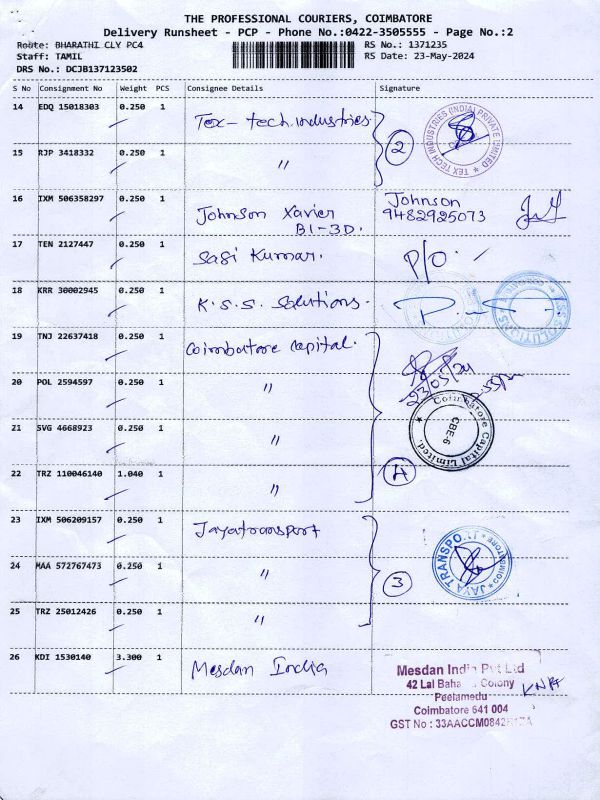 THE PROFESSIONAL COURIERS, COIMBATORE
Delivery Runsheet - PCP - Phone No.:0422-3505555 - Page No.:2
Route: BHARATHI CLY PC4 RS No.: 1371235
Staff: TAMIL RS Date: 23-May-2024
DRS No.: DCJB137123502
S No Consignment No Weight PCS Consignee Details Signature
14 EDQ 15018303 0.250 1 Tex-tech industries 2 TEX TECH INDUSTRIES (INDIA) PRIVATE LIMITED
15 RJP 3418332 0.250 1 "
16 IXM 506358297 0.250 1 Johnson Xavier Johnson
B1-3D. 9482925073
17 TEN 2127447 0.250 1 Sasi Kumar. P/O
18 KRR 30002945 0.250 1 K.S.S. Solutions.
19 TNJ 22637418 0.250 1 Coimbatore Capital. 23/05/24
20 POL 2594597 0.250 1 "
21 SVG 4668923 0.250 1 " Coimbatore Capital Limited. CBE-6
22 TRZ 110046140 1.040 1 " 4
23 IXM 506209157 0.250 1 Jayatransport
24 MAA 572767473 0.250 1 " JAYA TRANSPORT COIMBATORE
25 TRZ 25012426 0.250 1 " 3
26 KDI 1530140 3.300 1 Mesdan India
Mesdan India Pvt Ltd
42 Lal Colony
Peelamedu
Coimbatore 641 004
GST No :